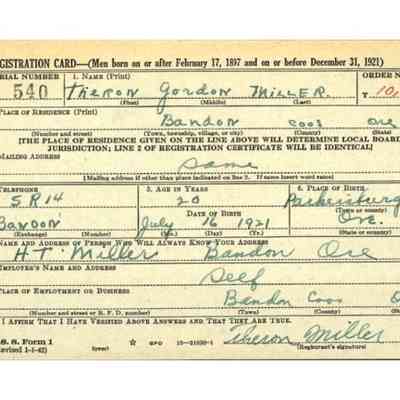 REGISTRATION CARD—(Men born on or after February 17, 1897 and on or before December 31, 1921)
SERIAL NUMBER 1. NAME (Print) ORDER N
540 THERON GORDON MILLER. 10,
(First) (Middle) (Last)
PLACE OF RESIDENCE (Print)
Bandon Coos Ore
(Number and street) (Town, township, village, or city) (County)
[THE PLACE OF RESIDENCE GIVEN ON THE LINE ABOVE WILL DETERMINE LOCAL BOARD
JURISDICTION; LINE 2 OF REGISTRATION CERTIFICATE WILL BE IDENTICAL]
MAILING ADDRESS
Same
[Mailing address if other than place indicated on line 2. If same insert word same]
TELEPHONE 5. AGE IN YEARS 6. PLACE OF BIRTH
5 R 14 20 Parkersburg
DATE OF BIRTH (Town or county)
Bandon July 16 1921 Ore.
(Exchange) (Number) (Mo.) (Day) (Yr.) (State or country)
NAME AND ADDRESS OF PERSON WHO WILL ALWAYS KNOW YOUR ADDRESS
H.T. Miller Bandon Ore
EMPLOYER'S NAME AND ADDRESS
Self
PLACE OF EMPLOYMENT OR BUSINESS
Bandon Coos O
(Number and street or R. F. D. number) (Town) (County)
I AFFIRM THAT I HAVE VERIFIED ABOVE ANSWERS AND THAT THEY ARE TRUE.
S. S. Form 1
(Revised 1-1-42) (over) ☆ GPO 16—21630-1 Theron Miller
(Registrant's signature)